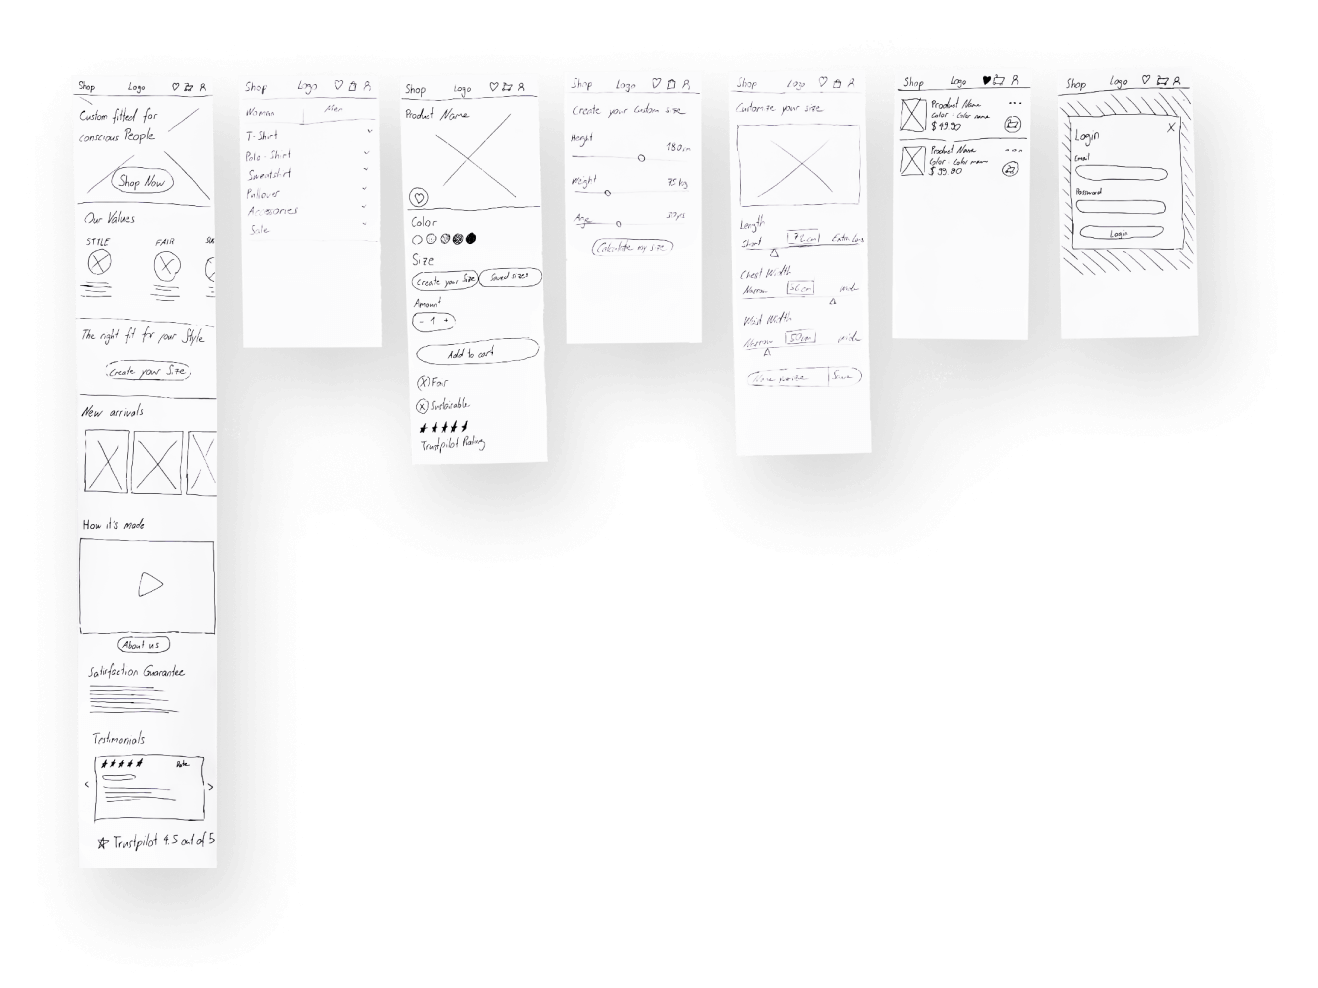 Shop Logo
Custom fitted for
conscious People
Shop Now
Our Values
STYLE FAIR
The right fit for your Style
Create your Size
New arrivals
How it's made
About us
Satisfaction Guarantee
Testimonials
Date
Trustpilot 4.5 out of 5
Shop Logo
Woman Men
T-Shirt
Polo-Shirt
Sweatshirt
Pullover
Accessories
Sale
Shop Logo
Product Name
Color
Size
Create your Size Saved sizes
Amount
- 1 +
Add to cart
Fair
Sustainable
Trustpilot Rating
Shop Logo
Create your Custom Size
Height
180cm
Weight
75 kg
Age
Calculate my size
Shop Logo
Customize your size
Length
Short 76cm
Chest Width
Narrow 56cm wide
Waist Width
Narrow 50cm wide
Save
Shop Logo
Product Name ...
Color - Color name
$ 49.90
Product Name ...
Color - Color name
$ 39.90
Shop Logo
Login X
Email
Password
Login